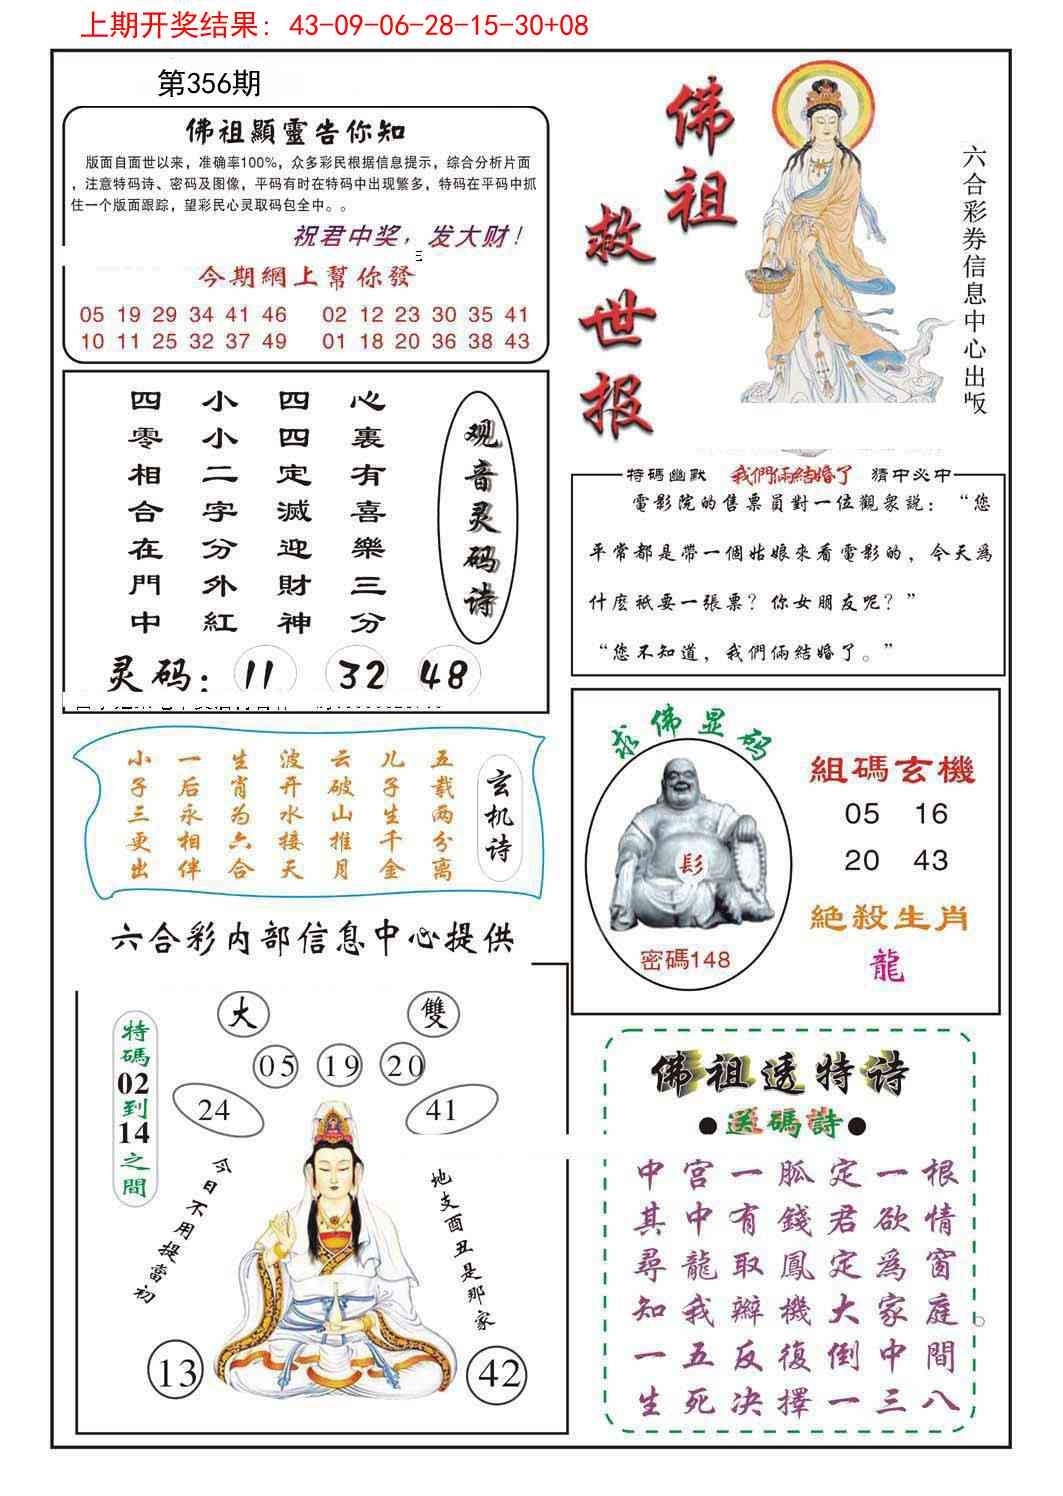 上期开奖结果：43-09-06-28-15-30+08
第356期
佛祖顯靈告你知
版面自面世以来，准确率100%，众多彩民根据信息提示，综合分析片面
，注意特码诗、密码及图像，平码有时在特码中出现繁多，特码在平码中抓
住一个版面跟踪，望彩民心灵取码包全中。。
祝君中奖，发大财！
今期網上幫你發
05 19 29 34 41 46 02 12 23 30 35 41
10 11 25 32 37 49 01 18 20 36 38 43
佛祖
救世报
六合彩券信息中心出版
观音灵码诗
心裏有喜樂三分
四四定滅迎財神
小小二字分外紅
四零相合在門中
灵码：11 32 48
特碼幽默 我們倆結婚了 猜中必中
電影院的售票員對一位觀衆説：“您
平常都是帶一個姑娘來看電影的，今天爲
什麽衹要一張票？你女朋友呢？”
“您不知道，我們倆結婚了。”
玄机诗
五载两分离
儿子生千金
云破山推月
波开水接天
生肖为六合
一后永相伴
小子三更出
求佛显码
髟
密碼148
組碼玄機
05 16
20 43
絶殺生肖
龍
六合彩内部信息中心提供
大 雙
05 19 20
24 41
特碼02到14之間
今日不用提當初
地支酉丑是那家
13 42
佛祖透特诗
●送碼詩●
中宫一胍定一根
其中有錢君欲情
尋龍取鳳定爲窗
知我辦機大家庭
一五反復倒中間
生死决擇一三八